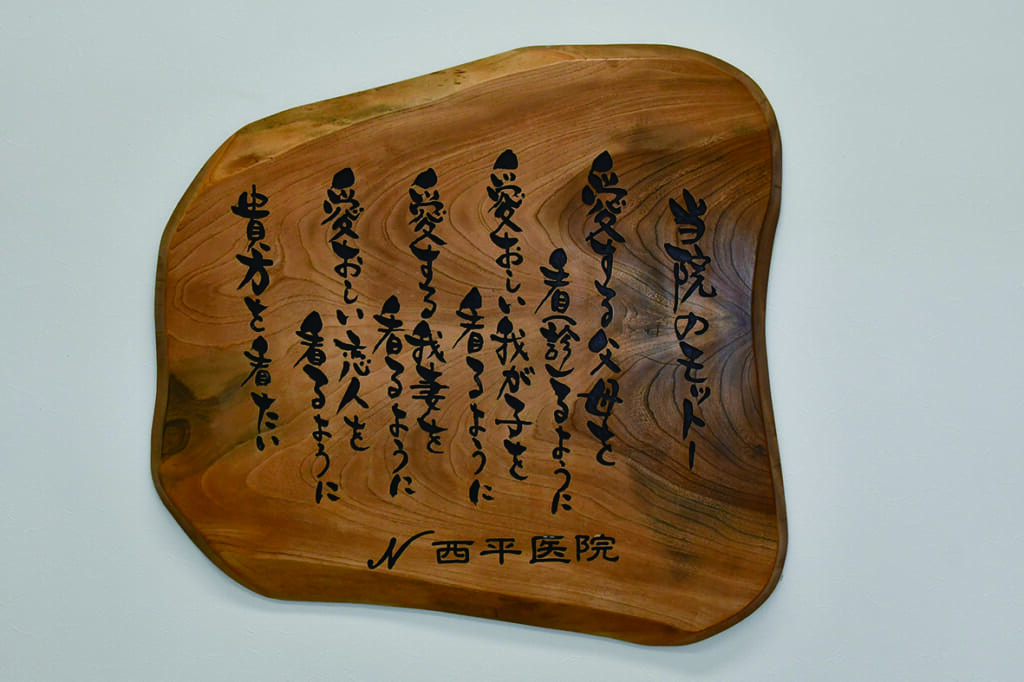 当院のモットー
愛する父母を
看(診)るように
愛おしい我が子を
看るように
愛する我妻を
看るように
愛おしい恋人を
看るように
貴方を看たい
N 西平医院